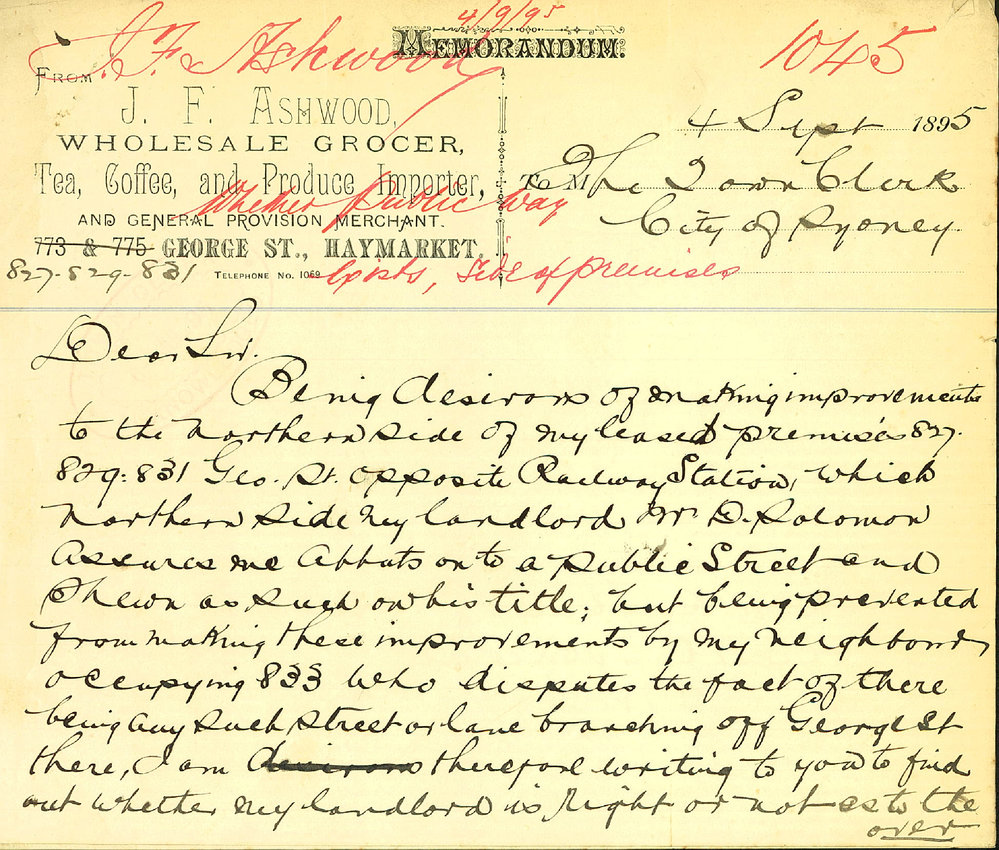 4/9/95
J. F. Ashwood
MEMORANDUM.
1045
FROM
J. F. ASHWOOD,
WHOLESALE GROCER,
Tea, Coffee, and Produce Importer,
AND GENERAL PROVISION MERCHANT.
773 & 775 GEORGE ST., HAYMARKET.
827-829-831
TELEPHONE No. 1069
4 Sept 1895
To M The Town Clerk
City of Sydney.
Whether Public Way
Exists, side of premises
Dear Sir.
Being desirous of making improvements
to the Northern side of my leased premises 827-
829-831 Geo. St. opposite Railway Station, which
Northern side my landlord Mr D. Solomon
assures me abbuts on to a public Street and
Shewn as such on his title; but being prevented
from making these improvements by my neighbour
occupying 833 who disputes the fact of there
being any such street or lane branching off George St
there, I am desirous therefore writing to you to find
out whether my landlord is right or not as to the
over